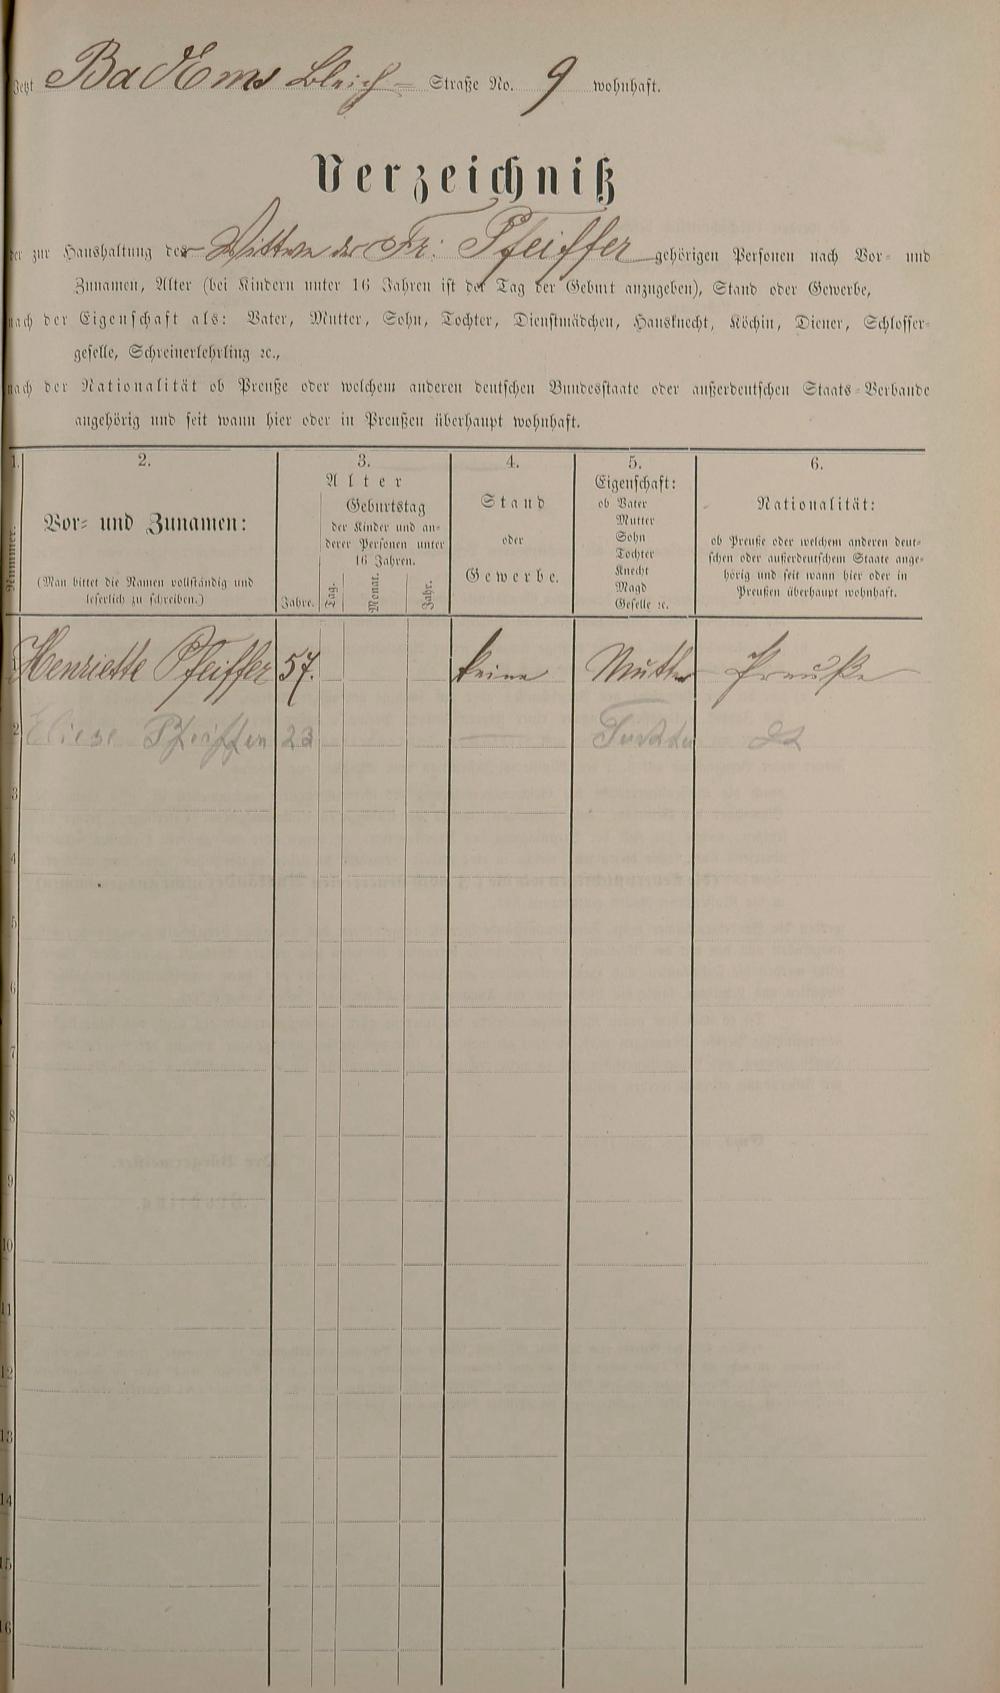 Jetzt Bad Ems Bleich- Straße No. 9 wohnhaft.
Verzeichniß
der zur Haushaltung der Wittwe der Fr: Pfeiffer gehörigen Personen nach Vor- und
Zunamen, Alter (bei Kindern unter 16 Jahren ist der Tag der Geburt anzugeben), Stand oder Gewerbe,
nach der Eigenschaft als: Vater, Mutter, Sohn, Tochter, Dienstmädchen, Hausknecht, Köchin, Diener, Schlosser-
geselle, Schreinerlehrling ꝛc.,
nach der Nationalität ob Preuße oder welchem anderen deutschen Bundesstaate oder außerdeutschen Staats-Verbande
angehörig und seit wann hier oder in Preußen überhaupt wohnhaft.
1.
Nummer.
2.
Vor- und Zunamen:
(Man bittet die Namen vollständig und
leserlich zu schreiben.)
3.
Alter
Jahre.
Geburtstag
der Kinder und an-
derer Personen unter
16 Jahren.
Tag.
Monat.
Jahr.
4.
Stand
oder
Gewerbe.
5.
Eigenschaft:
ob Vater
Mutter
Sohn
Tochter
Knecht
Magd
Geselle ꝛc.
6.
Nationalität:
ob Preuße oder welchem anderen deut-
schen oder außerdeutschem Staate ange-
hörig und seit wann hier oder in
Preußen überhaupt wohnhaft.
1 Henriette Pfeiffer 57. keine Mutter Preuße
2 Eliese Pfeiffer 23 — Tochter
3
4
5
6
7
8
9
10
11
12
13
14
15
16